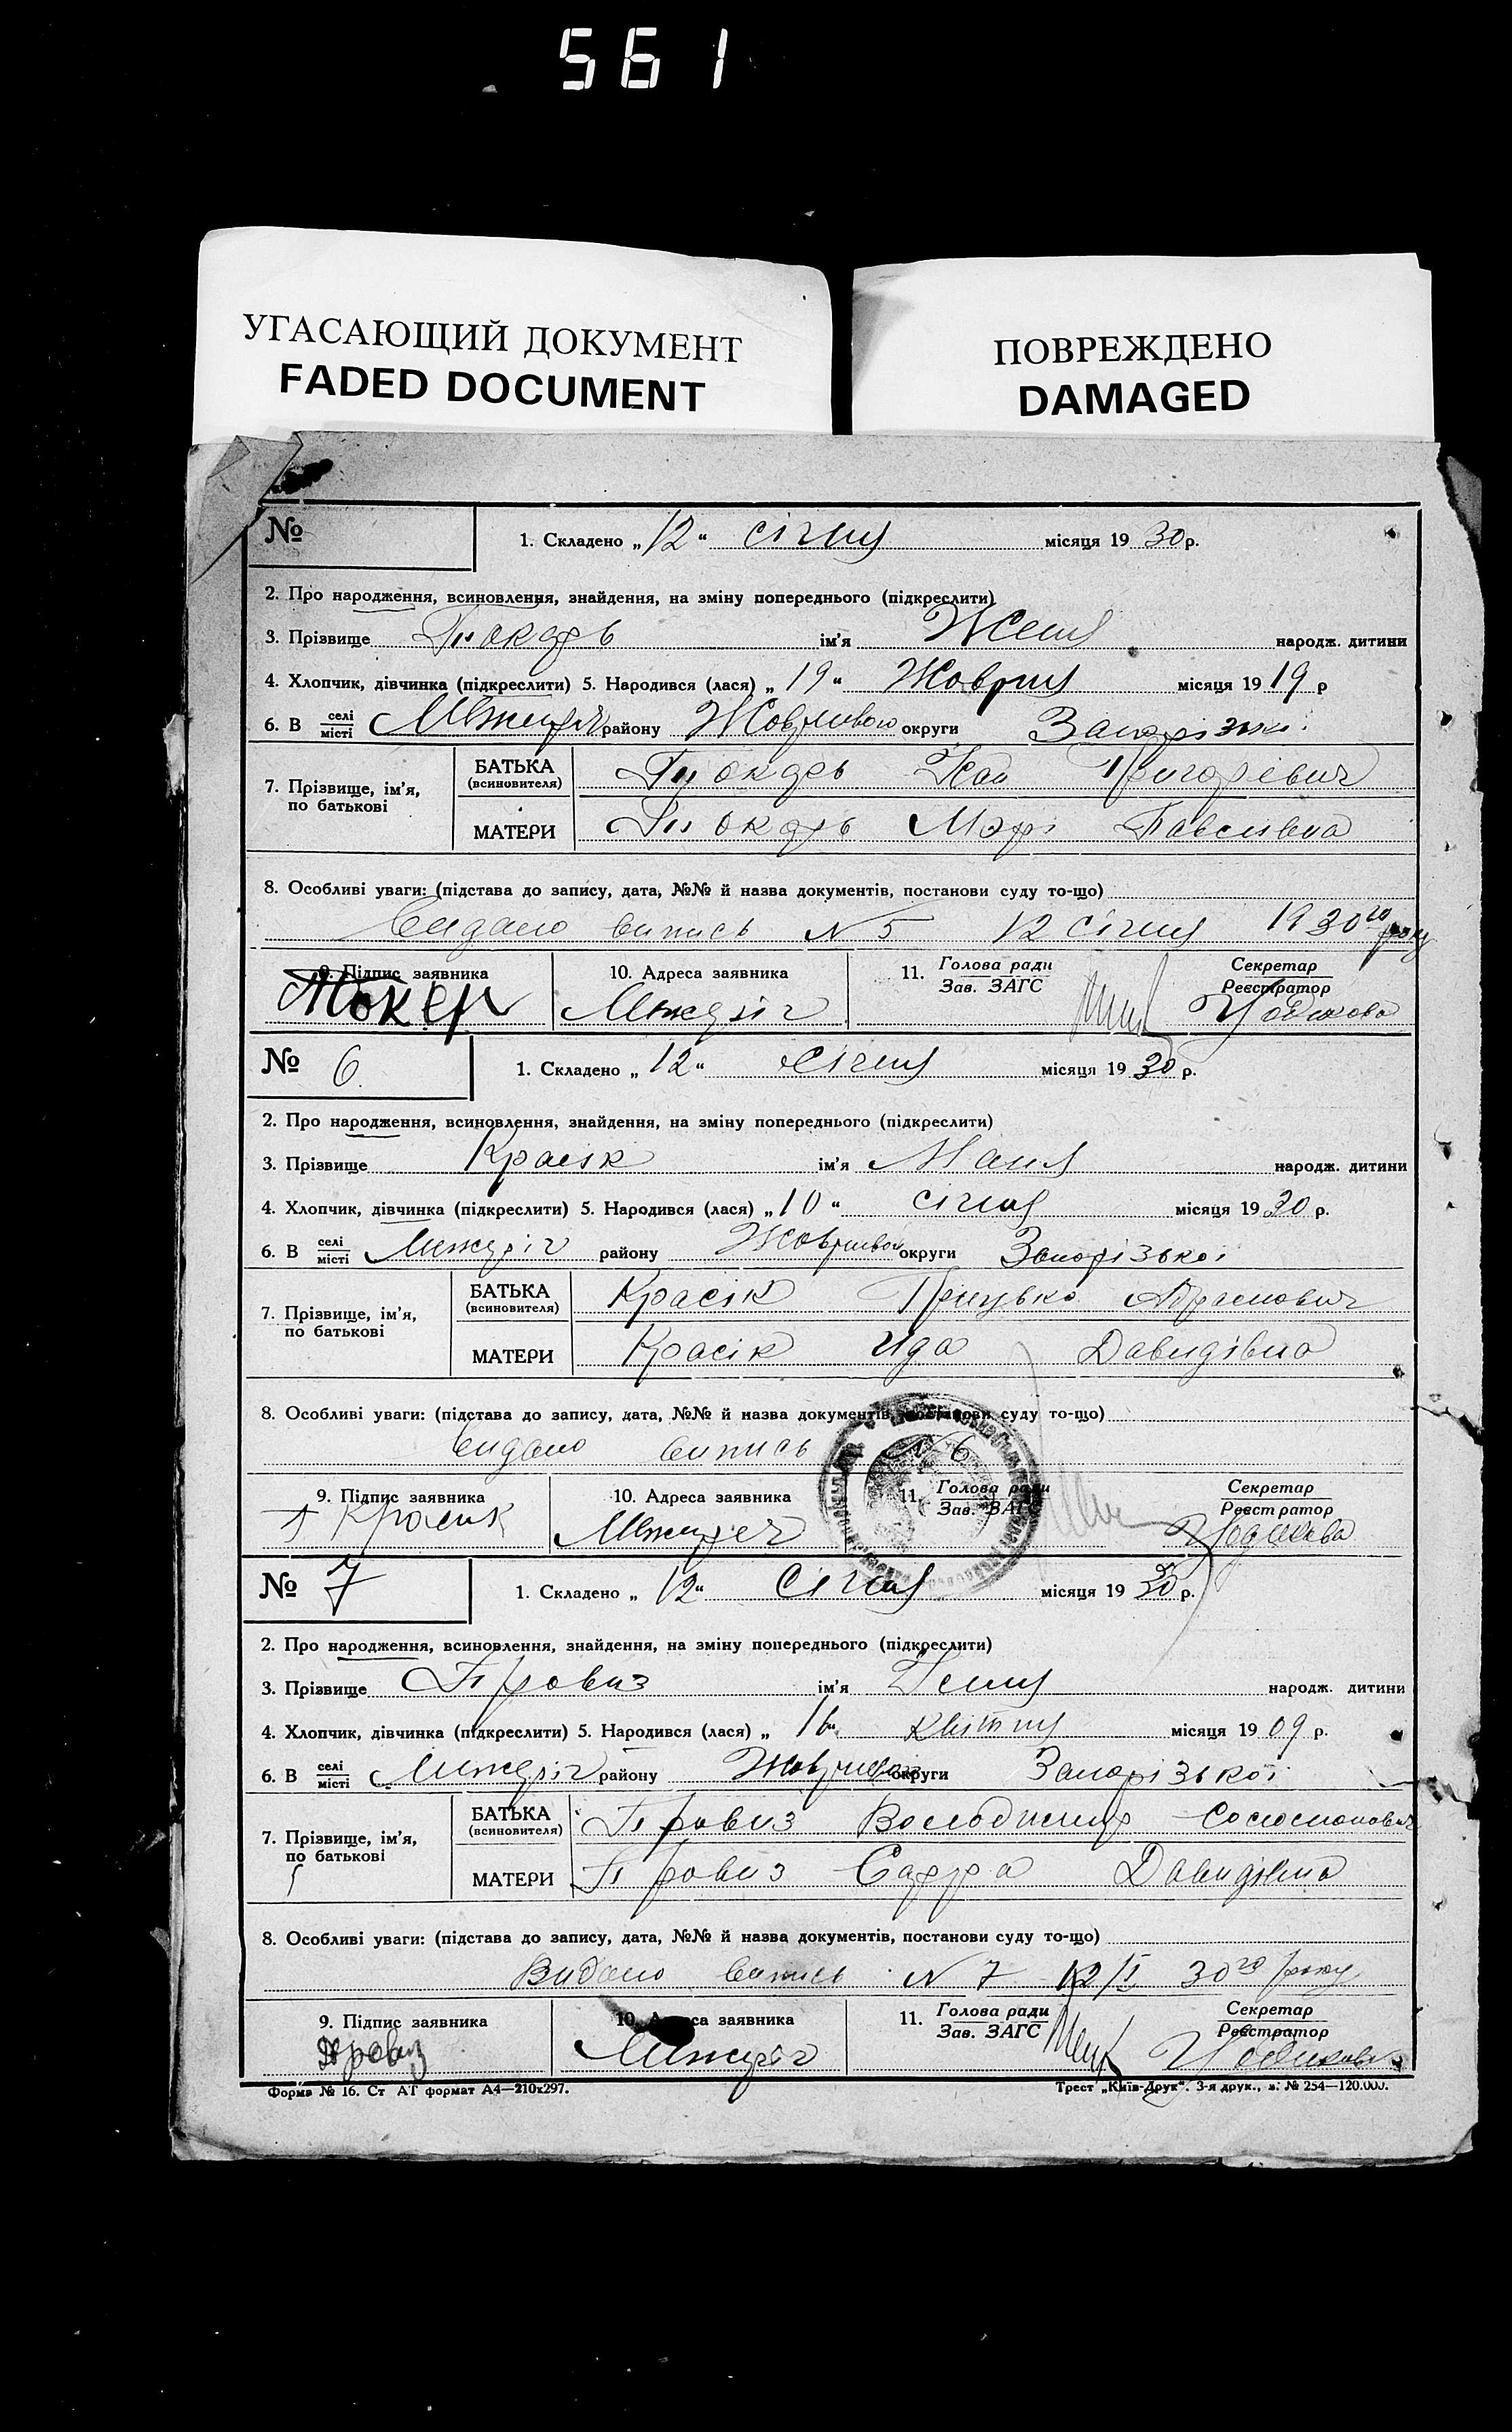 561
УГАСАЮЩИЙ ДОКУМЕНТ
FADED DOCUMENT
ПОВРЕЖДЕНО
DAMAGED
№
1. Складено „12“ січня місяця 1930 р.
2. Про народження, всиновлення, знайдення, на зміну попереднього (підкреслити)
3. Прізвище Токарь ім'я Женя народж. дитини
4. Хлопчик, дівчинка (підкреслити) 5. Народився (лася) „19“ Жовтня місяця 1919 р
6. В селі місті району Жовтневого округи
7. Прізвище, ім'я, по батькові
БАТЬКА (всиновителя) Токарь Григорєвич
МАТЕРИ Токарь Мэрі Павлівна
8. Особливі уваги: (підстава до запису, дата, №№ й назва документів, постанови суду то-що)
Видано випись N 5 12 січня 1930го року
9. Підпис заявника Токер
10. Адреса заявника Межиріч
11. Голова ради Зав. ЗАГС
Секретар Реєстратор
№ 6
1. Складено „12“ січня місяця 1930 р.
2. Про народження, всиновлення, знайдення, на зміну попереднього (підкреслити)
3. Прізвище Красік ім'я Маня народж. дитини
4. Хлопчик, дівчинка (підкреслити) 5. Народився (лася) „10“ січня місяця 1930 р.
6. В селі місті Межиріч району округи Запорізької
7. Прізвище, ім'я, по батькові
БАТЬКА (всиновителя) Красік Грицько Абрамович
МАТЕРИ Красік Ида Давидівна
8. Особливі уваги: (підстава до запису, дата, №№ й назва документів, постанови суду то-що)
Видано випись N 6
9. Підпис заявника Красик
10. Адреса заявника Межиреч
11. Голова ради Зав. ЗАГС
Секретар Реєстратор
№ 7
1. Складено „12“ січня місяця 1930 р.
2. Про народження, всиновлення, знайдення, на зміну попереднього (підкреслити)
3. Прізвище Провиз ім'я Геня народж. дитини
4. Хлопчик, дівчинка (підкреслити) 5. Народився (лася) „16“ квітня місяця 1909 р.
6. В селі місті Межиріч району округи Запорізької
7. Прізвище, ім'я, по батькові
БАТЬКА (всиновителя) Провиз Володимир Соломонович
МАТЕРИ Провиз Сарра Давидівна
8. Особливі уваги: (підстава до запису, дата, №№ й назва документів, постанови суду то-що)
Видано випись N 7 12/I 30го року
9. Підпис заявника Провиз
10. Адреса заявника Межиріч
11. Голова ради Зав. ЗАГС
Секретар Реєстратор
Форма № 16. Ст АТ формат А4—210х297.
Трест „Київ-Друк“. 3-я друк., з. № 254—120.000.